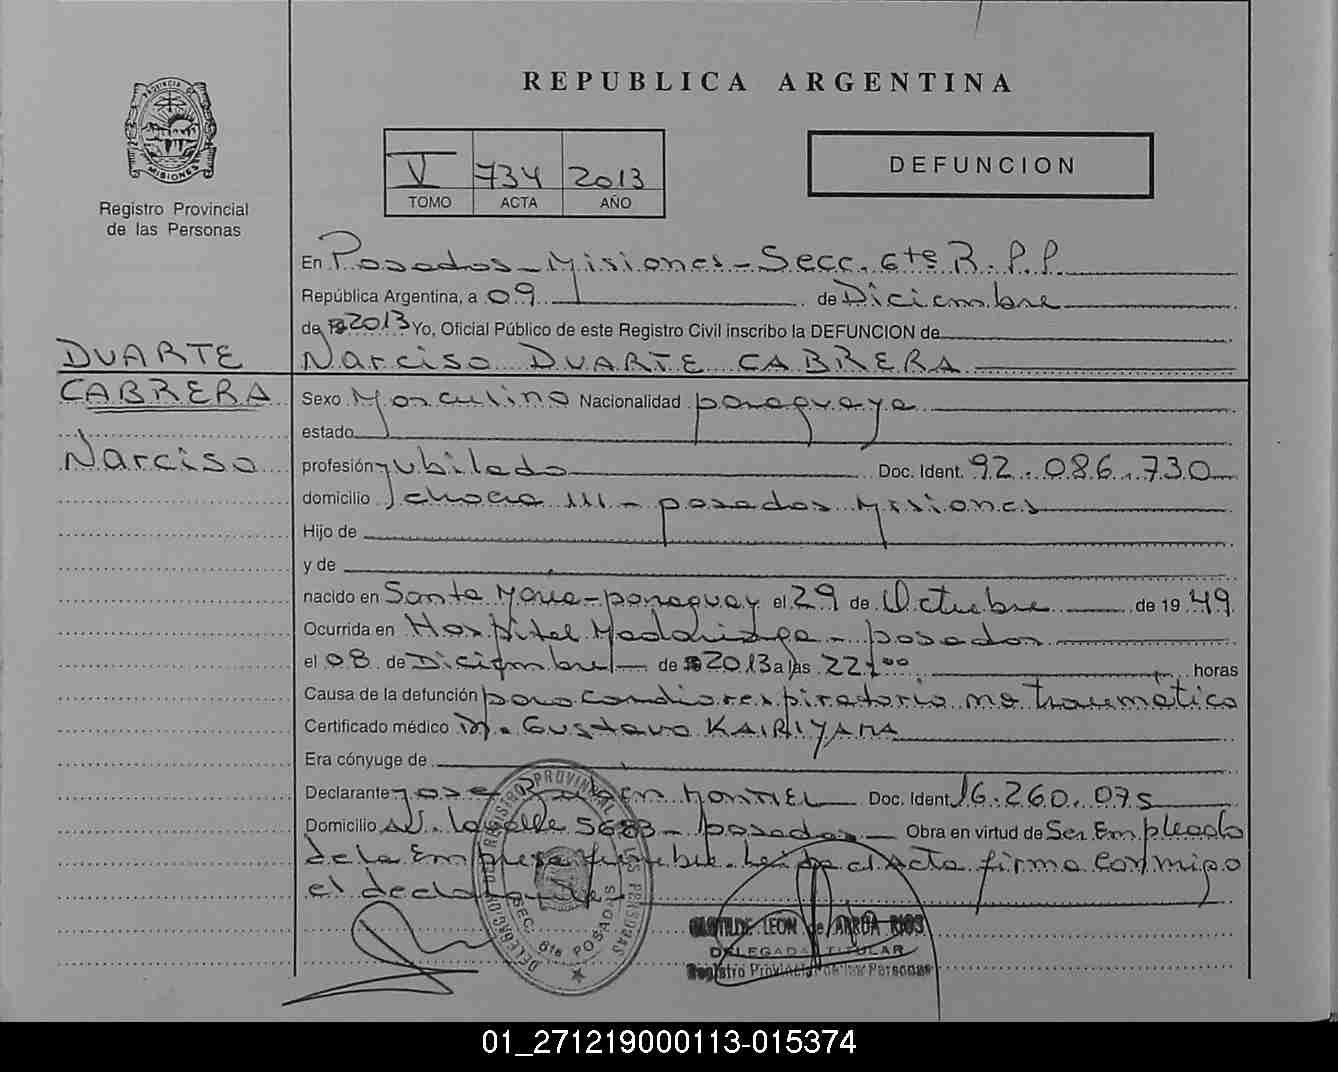 REPUBLICA ARGENTINA
PROVINCIA D
MISIONES
Registro Provincial
de las Personas
V 734 2013
TOMO ACTA AÑO
DEFUNCION
En Posadas - Misiones - Secc. 6ta R. P. P.
República Argentina, a 09 de Diciembre
de 2013 Yo, Oficial Público de este Registro Civil inscribo la DEFUNCION de
Narciso DUARTE CABRERA
DUARTE
CABRERA
Narciso
Sexo Masculino Nacionalidad paraguaya
estado
profesión jubilado Doc. Ident. 92.086.730
domicilio chacra III - posadas Misiones
Hijo de
y de
nacido en Santa Maria - paraguay el 29 de Octubre de 19 49
Ocurrida en Hospital Madariaga - posadas
el 08 de Diciembre de 2013 a las 22:00 horas
Causa de la defunción paro cardiorespiratorio no traumatico
Certificado médico Dr. Gustavo KAIRIYAMA
Era cónyuge de
Declarante Jose Ruben MONTIEL Doc. Ident 16.260.075
Domicilio AV. Lavalle 5683 - posadas - Obra en virtud de Ser Empleado
de la Empresa funebre. Leida el Acta firma conmigo
el declarante.
DELEGACION DE REGISTRO PROVINCIAL DE LAS PERSONAS
SEC. 6ta POSADAS
CLOTILDE LEON de ARRUA RIOS
DELEGADA TITULAR
Registro Provincial de las Personas
01_271219000113-015374